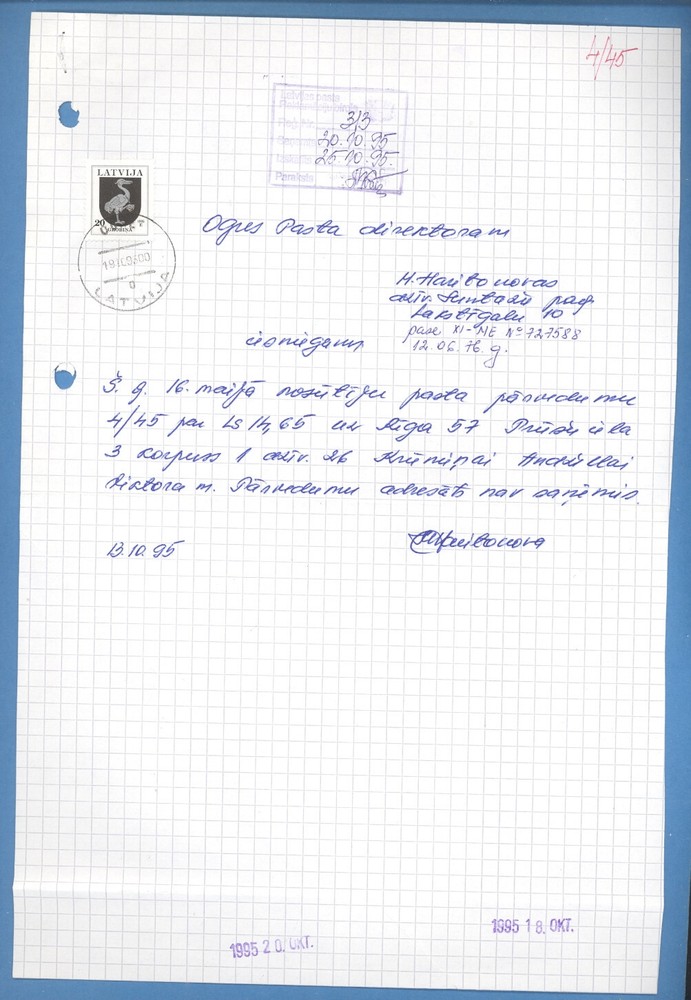 4/45
Latvijas pasta
313
20.10.95
25.10.95.
Paraksts
LATVIJA
20
LATVIJA
Ogres Pasta direktoram
H. Haritonovas
dzīv. Suntažu pag.
Lakstīgalu 10
pase XI-ME № 727588
12.06.76. g.
iesniegums
Š. g. 16. maijā nosūtīju pasta pārvedumu
4/45 par Ls 14,65 uz Rīga 57 Prūšu iela
3 korpuss 1 dzīv. 26 Krūmiņai
Viktora m. Pārvedumu adresāts nav saņēmis.
13.10.95
1995 18. OKT.
1995 20. OKT.